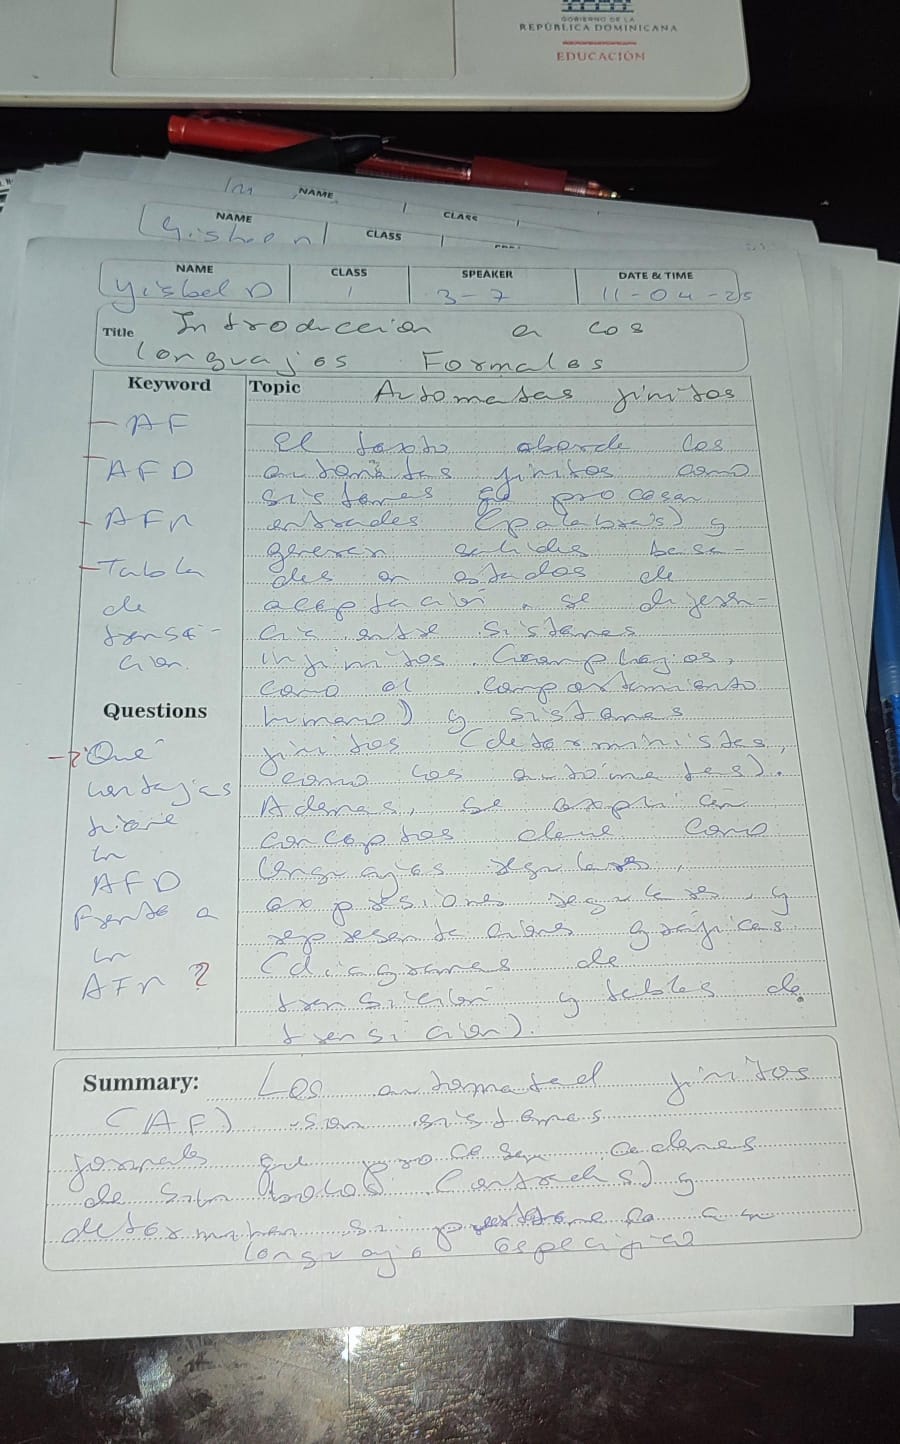 GOBIERNO DE LA
REPÚBLICA DOMINICANA
EDUCACIÓN
NAME
CLASS
NAME
CLASS
NAME CLASS SPEAKER DATE & TIME
Yisbel D 1 3-7 11-04-25
Title Introduccion a los
lenguajes Formales
Keyword
- AF
- AFD
- AFn
- Tabla
de
transi-
cion.
Questions
- ¿Qué
ventajas
tiene
un
AFD
frente a
un
AFn ?
Topic Automatas finitos
El texto aborda los
autómatas finitos como
sistemas que procesan
entradas (palabras) y
generan salidas basa-
das en estados de
aceptación, se diferen-
cia entre sistemas
infinitos (complejos,
como el comportamiento
humano) y sistemas
finitos (deterministas,
como los autómatas).
Ademas, se explican
conceptos clave como
lenguajes regulares,
expresiones regulares, y
representaciones gráficas
(diagramas de
transición y tablas de
transicion).
Summary: Los automatas finitos
(AF) son sistemas
formales que procesan cadenas
de simbolos (entradas) y
determinan si pertenece a un
lenguaje especifico